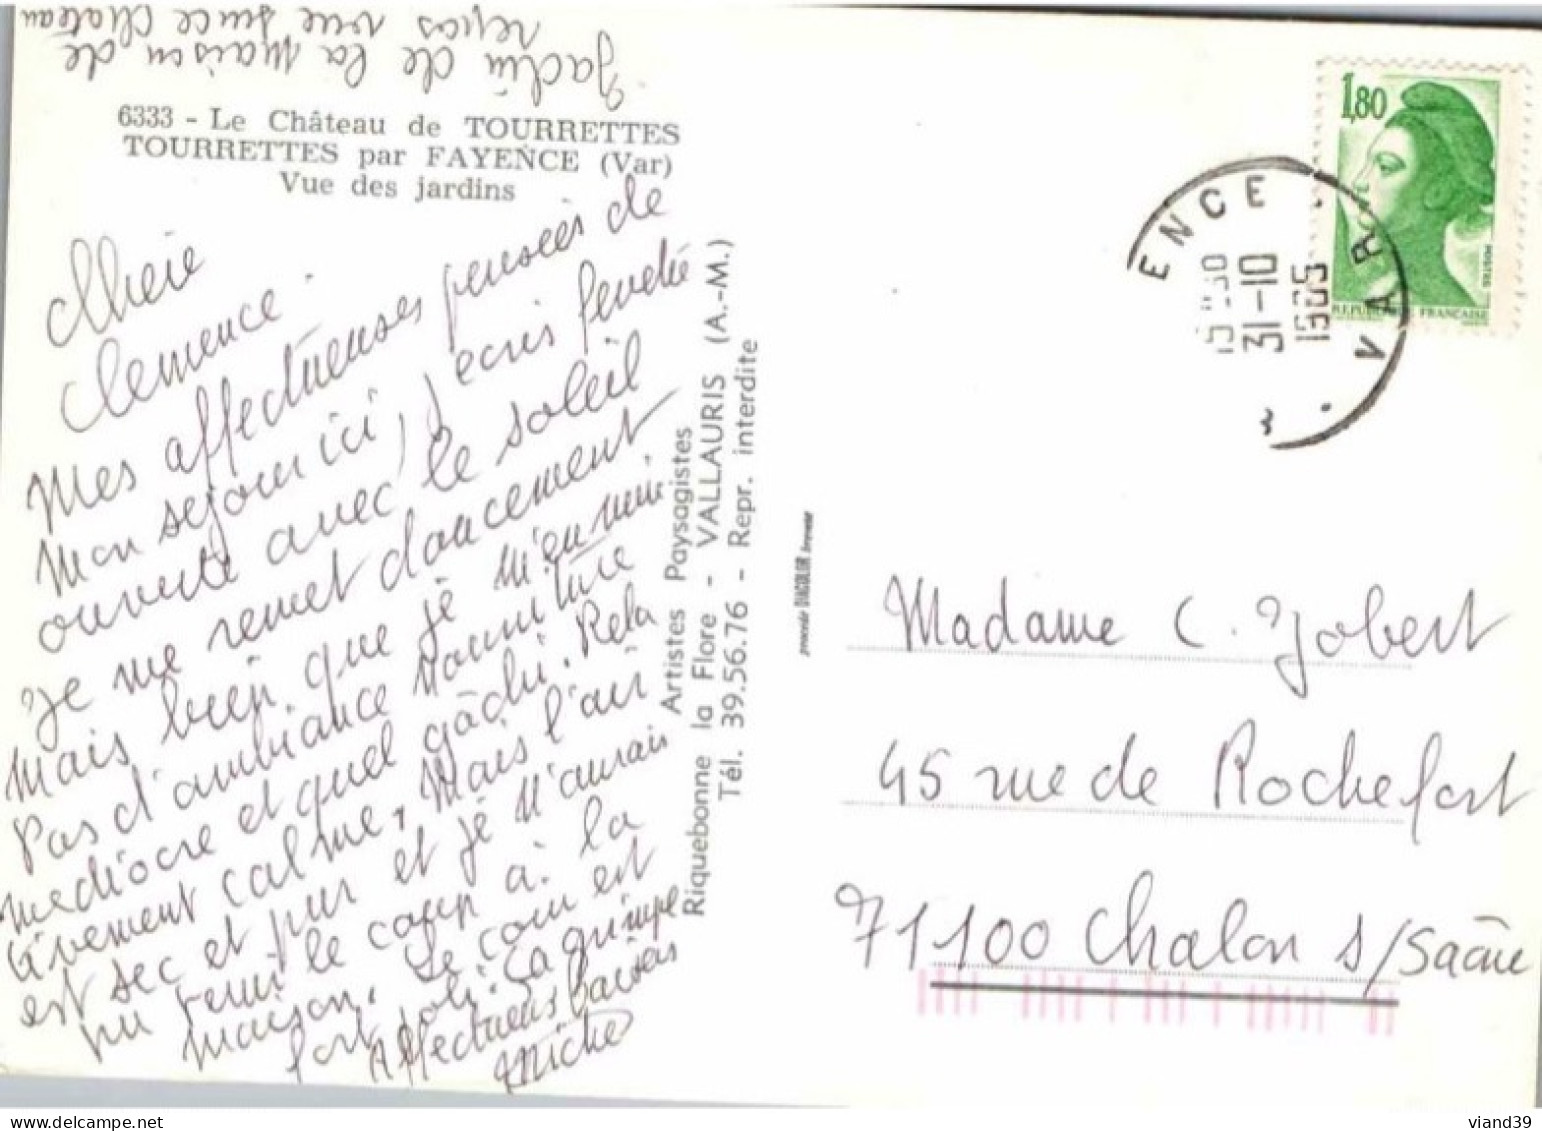 Jardin de la maison de
repos vue sur ce château
6333 - Le Château de TOURRETTES
TOURRETTES par FAYENCE (Var)
Vue des jardins
Chère
Clemence.
Mes affectueuses pensées de
mon sejour ici, j'ecris fenetre
ouverte avec le soleil
Je me remet doucement
mais bien que je m'ennuie
Pas d'ambiance nourriture
mediocre et quel gâchi. Rela
tivement calme, mais l'air
est sec et pur et je n'aurais
pu tenir le coup à la
maison. Le coin est
fort joli. Ça grimpe
Affectueux baisers
Miche
Artistes Paysagistes
Riquebonne la Flore - VALLAURIS (A.-M.)
Tél. 39.56.76 - Repr. interdite
procédé DIACOLOR breveté
1,80
POSTES
REPUBLIQUE FRANÇAISE
ENCE
31-10
VAR
Madame C. Jobert
45 rue de Rochefort
71100 Chalon s/Saône
www.delcampe.net
viand39